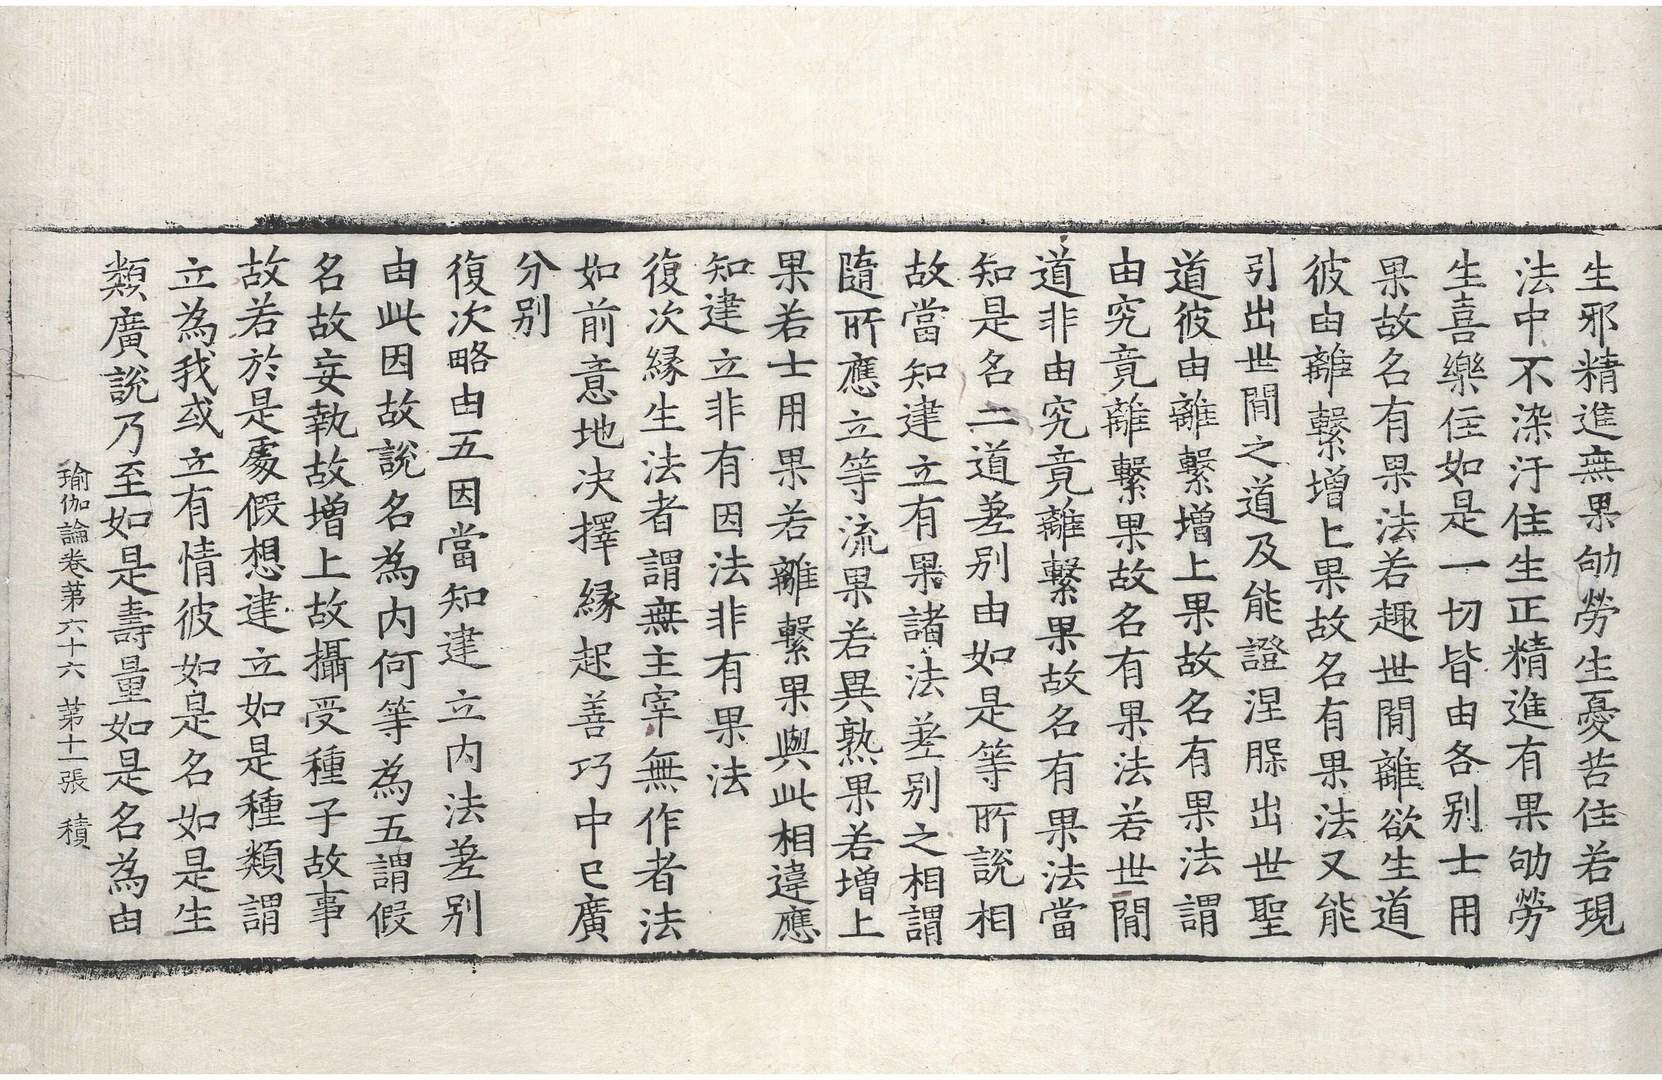 生邪精進無果劬勞生憂苦住若現
法中不染汙住生正精進有果劬勞
生喜樂住如是一切皆由各別士用
果故名有果法若趣世間離欲生道
彼由離繫增上果故名有果法又能
引出世間之道及能證涅脲出世聖
道彼由離繫增上果故名有果法謂
由究竟離繫果故名有果法若世間
道非由究竟離繫果故名有果法當
知是名二道差別由如是等所說相
故當知建立有果諸法差別之相謂
隨所應立等流果若異熟果若增上
果若士用果若離繫果與此相違應
知建立非有因法非有果法
復次緣生法者謂無主宰無作者法
如前意地決擇緣起善巧中已廣
分別
復次略由五因當知建立內法差別
由此因故說名為內何等為五謂假
名故妄執故增上故攝受種子故事
故若於是處假想建立如是種類謂
立為我或立有情彼如是名如是生
類廣說乃至如是壽量如是名為由
瑜伽論卷第六十六 第十一張 積